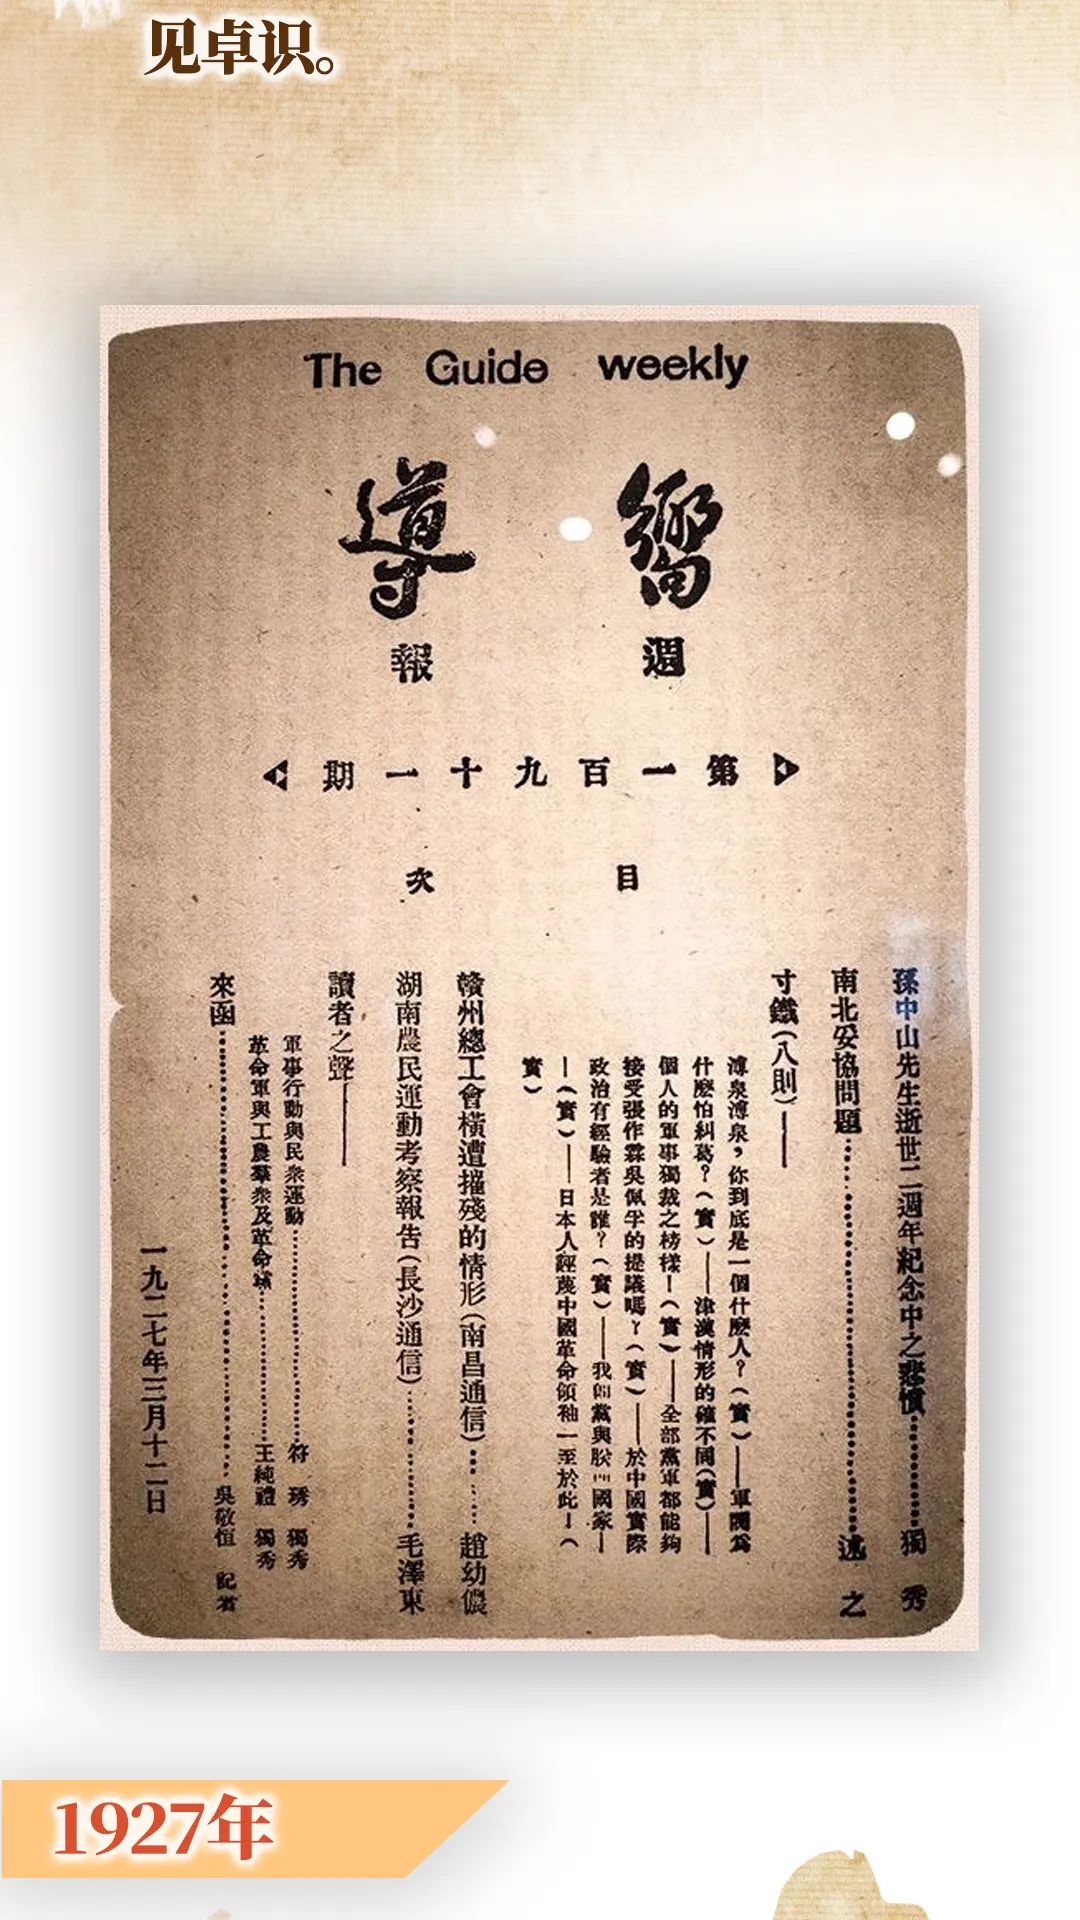 见卓识。
The Guide weekly
嚮導
週報
第一百九十一期
目次
孫中山先生逝世二週年紀念中之悲憤…………獨秀
南北妥協問題…………述之
寸鐵(八則)——
溥泉溥泉,你到底是一個什麽人?(實)——軍閥爲
什麽怕糾葛?(實)——津漢情形的確不同(實)——
個人的軍事獨裁之榜樣!(實)——全部黨軍都能夠
接受張作霖吳佩孚的提議嗎?(實)——於中國實際
政治有經驗者是誰?(實)——我們黨與 國家—
—(實)——日本人輕蔑中國革命領袖一至於此!(
實)
贛州總工會橫遭摧殘的情形(南昌通信)……趙幼儂
湖南農民運動考察報告(長沙通信)…………毛澤東
讀者之聲——
軍事行動與民衆運動…………符琇 獨秀
革命軍與工農羣衆及革命 …………王純禮 獨秀
來函…………吳敬恒 記者
一九二七年三月十二日
1927年